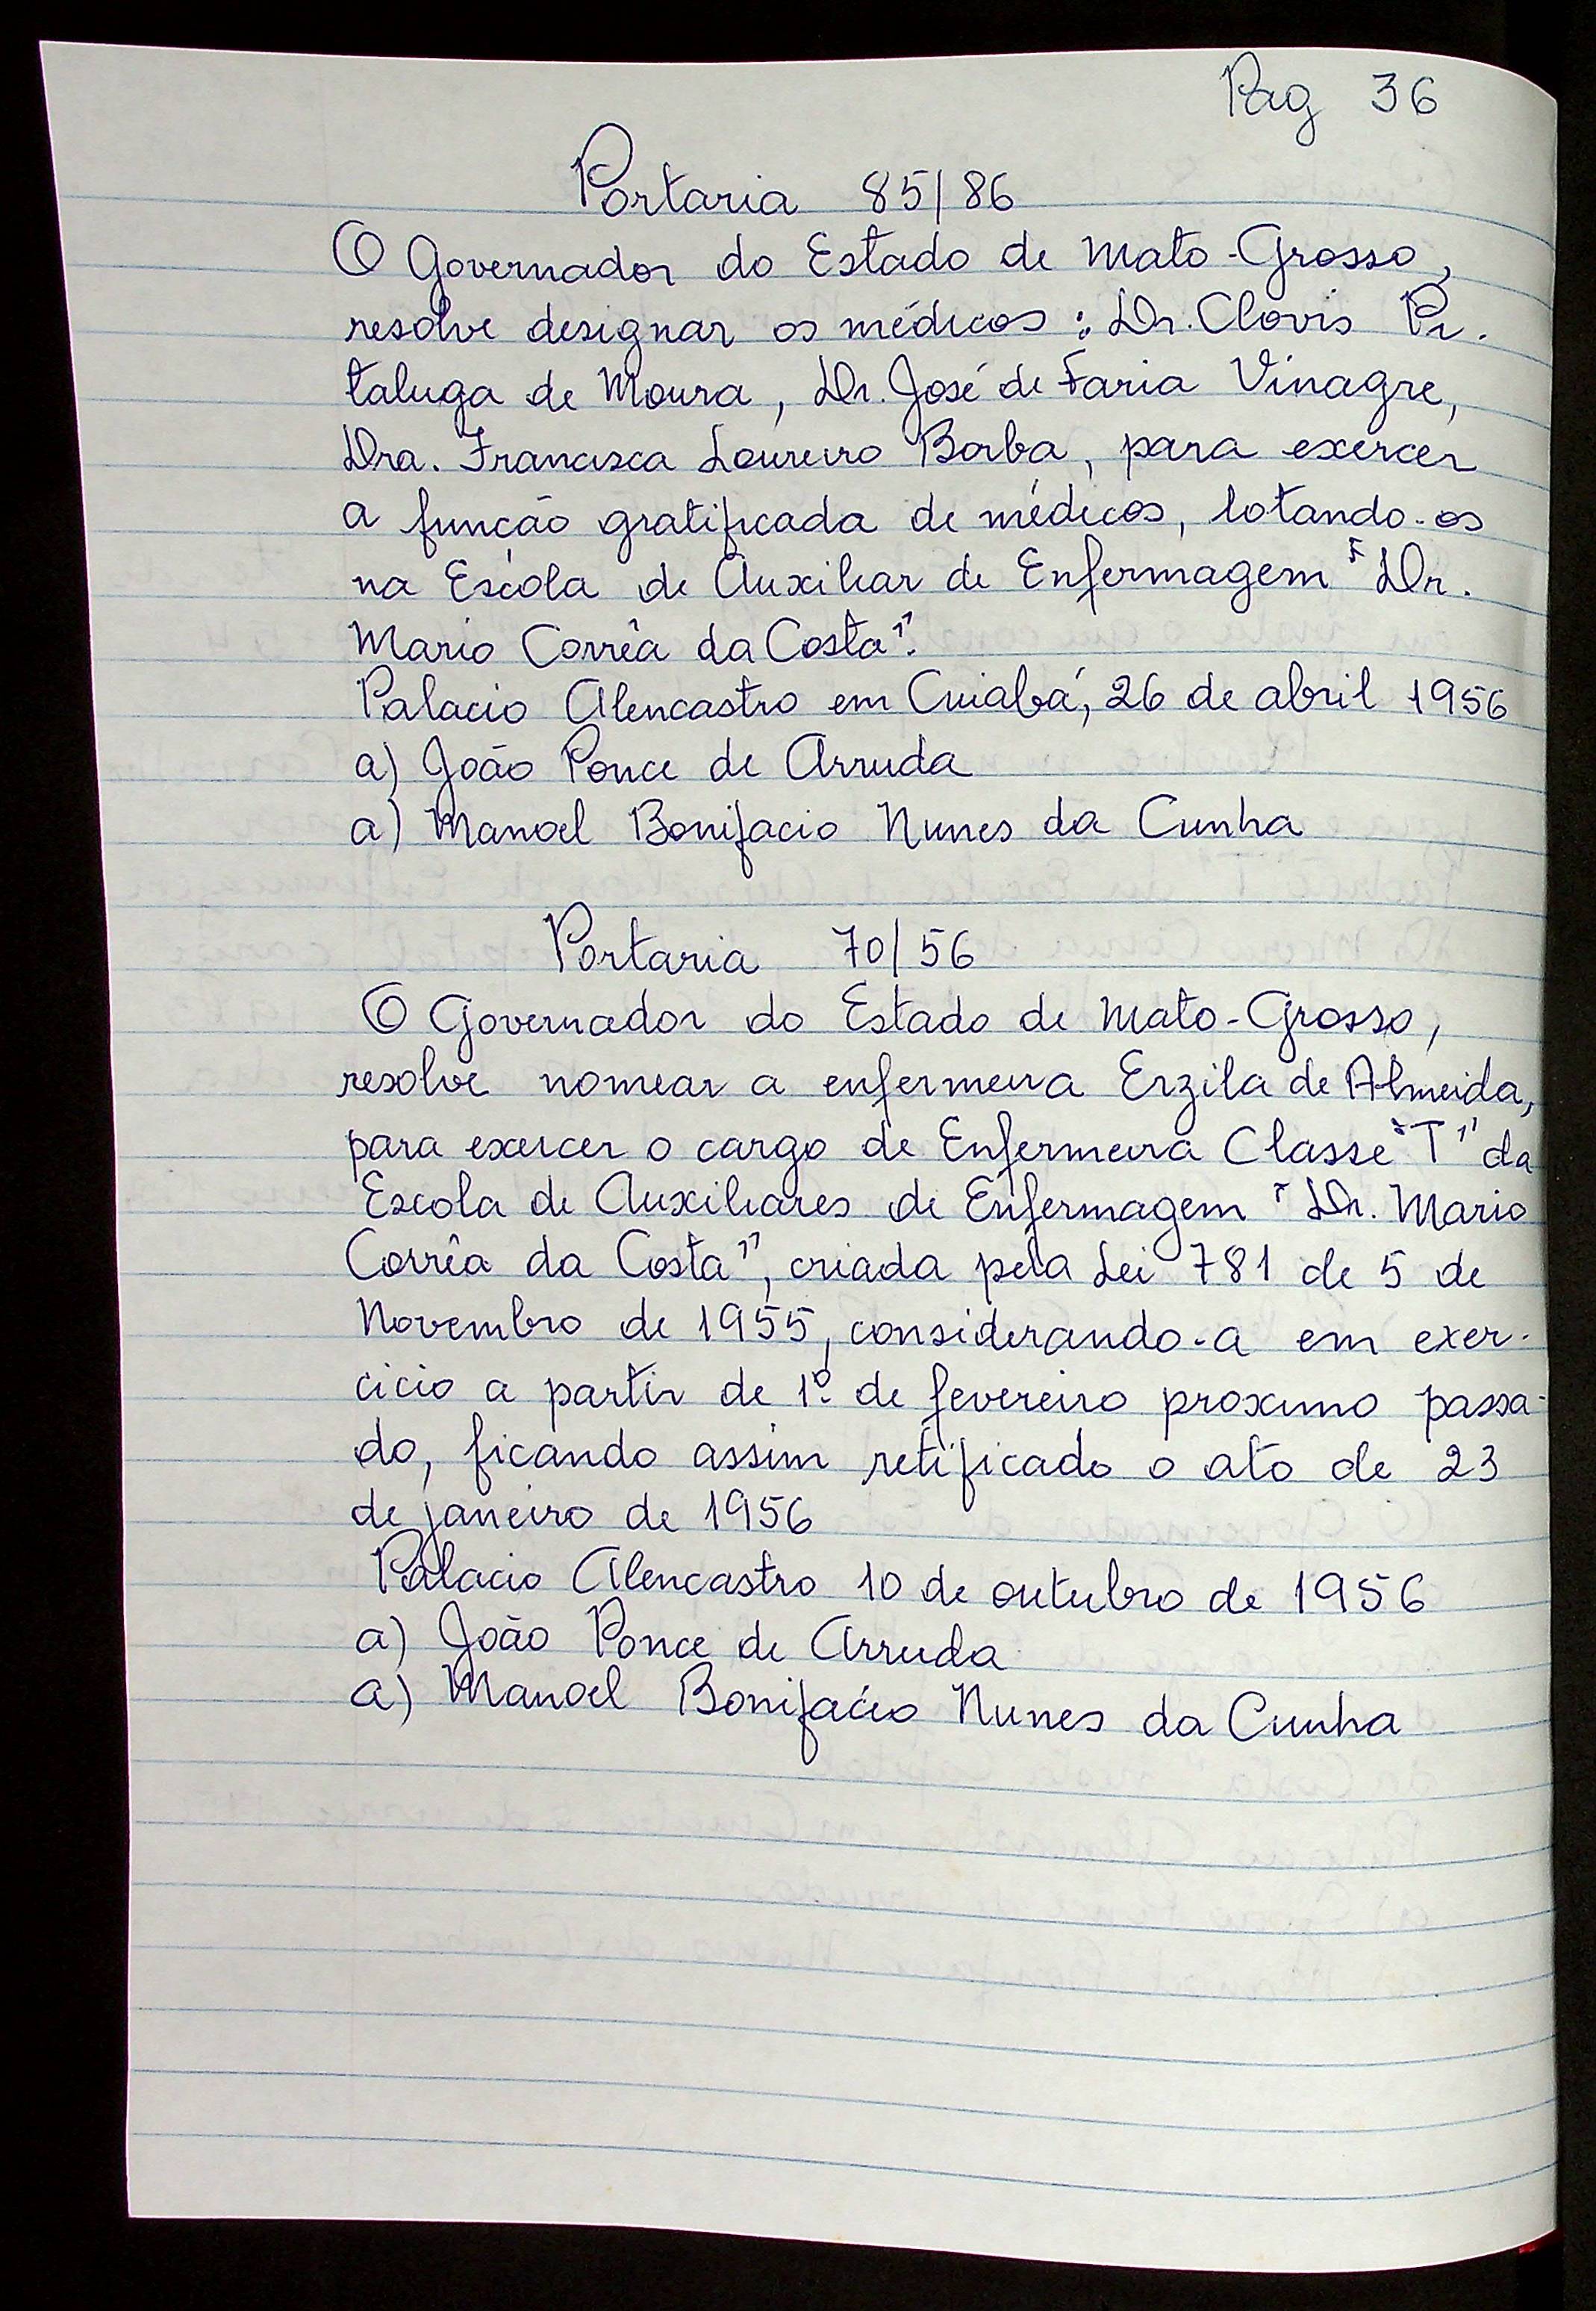 Pag 36
Portaria 85/86
O Governador do Estado de Mato-Grosso,
resolve designar os médicos: Dr. Clovis Pi-
taluga de Moura, Dr. José de Faria Vinagre,
Dra. Francisca Loureiro Borba, para exercer
a função gratificada de médicos, lotando-os
na Escola de Auxiliar de Enfermagem "Dr.
Mario Corrêa da Costa".
Palacio Alencastro em Cuiabá, 26 de abril 1956
a) João Ponce de Arruda
a) Manoel Bonifacio Nunes da Cunha
Portaria 70/56
O Governador do Estado de Mato-Grosso,
resolve nomear a enfermeira Erzila de Almeida,
para exercer o cargo de Enfermeira Classe "T" da
Escola de Auxiliares de Enfermagem "Dr. Mario
Corrêa da Costa", criada pela Lei 781 de 5 de
Novembro de 1955, considerando-a em exer-
cicio a partir de 1º de fevereiro proximo passa-
do, ficando assim retificado o ato de 23
de janeiro de 1956
Palacio Alencastro 10 de outubro de 1956
a) João Ponce de Arruda
a) Manoel Bonifácio Nunes da Cunha